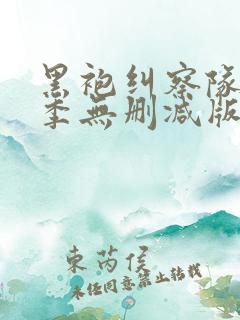 黑袍纠察队
季無删减版
東芮侯
未经同意禁止转载